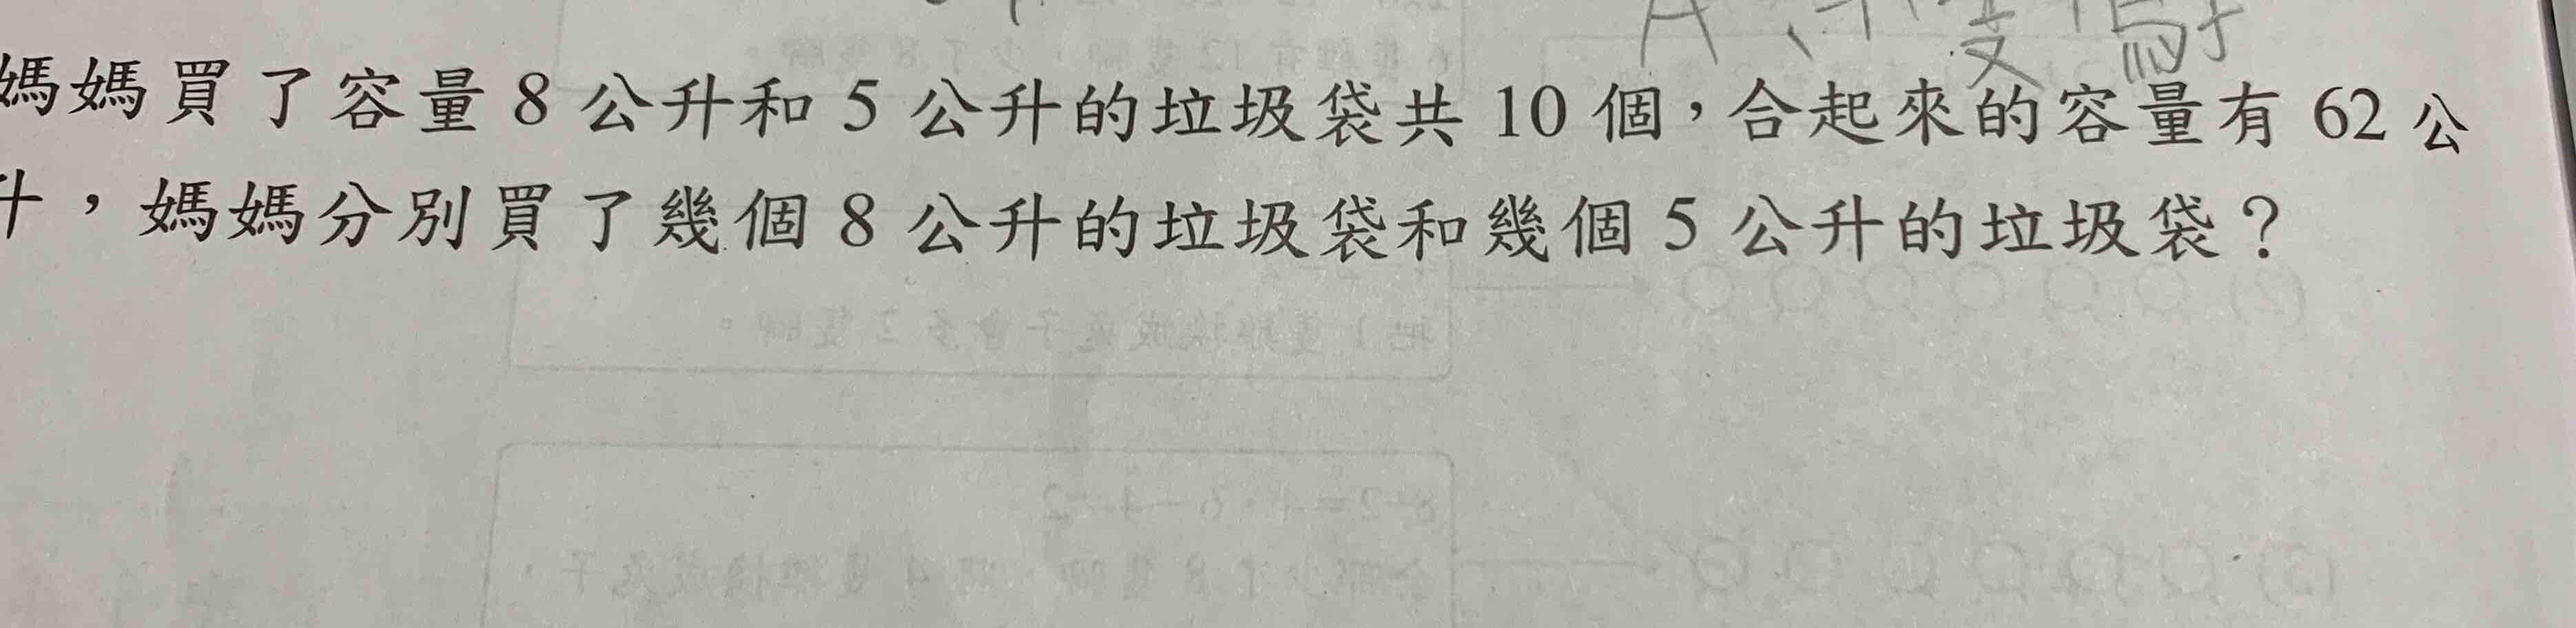 媽媽買了容量 8 公升和 5 公升的垃圾袋共 10 個，合起來的容量有 62 公
升，媽媽分別買了幾個 8 公升的垃圾袋和幾個 5 公升的垃圾袋？